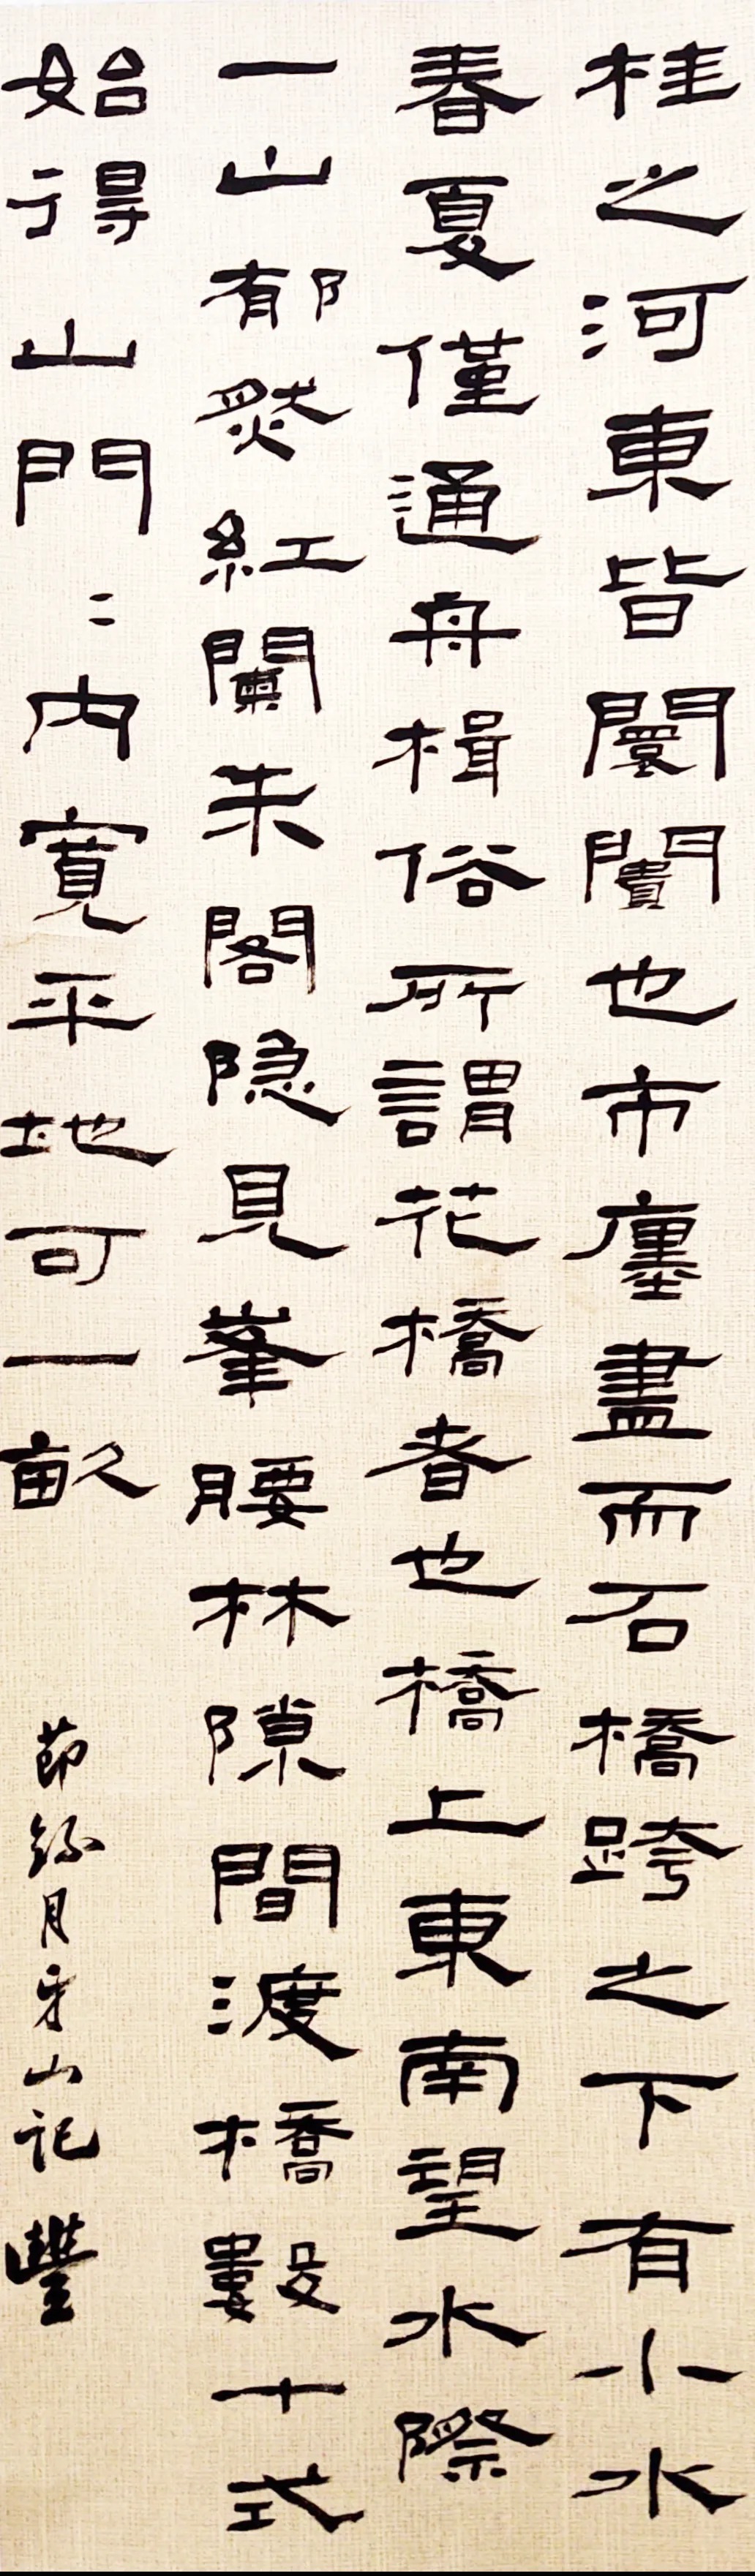 桂之河東皆闤闠也市廛盡而石橋跨之下有小水
春夏僅通舟楫俗所謂花橋者也橋上東南望水際
一山郁然紅闌朱閣隐見峯腰林隙間渡橋數十弍
始得山門〻内寬平地可一畝
節錄月牙山記 豐